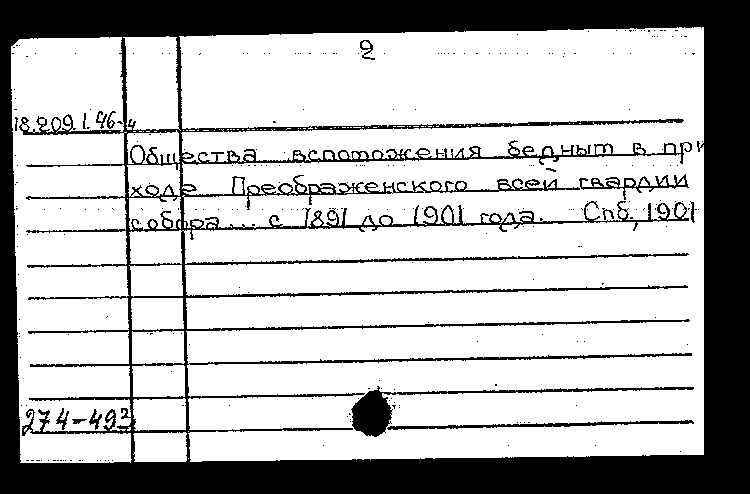 2
18.209.1.46-4
Общества вспоможения бедным в при
ходе Преображенского всей гвардии
собора... с 1891 до 1901 года. Спб, 1901
274-49²